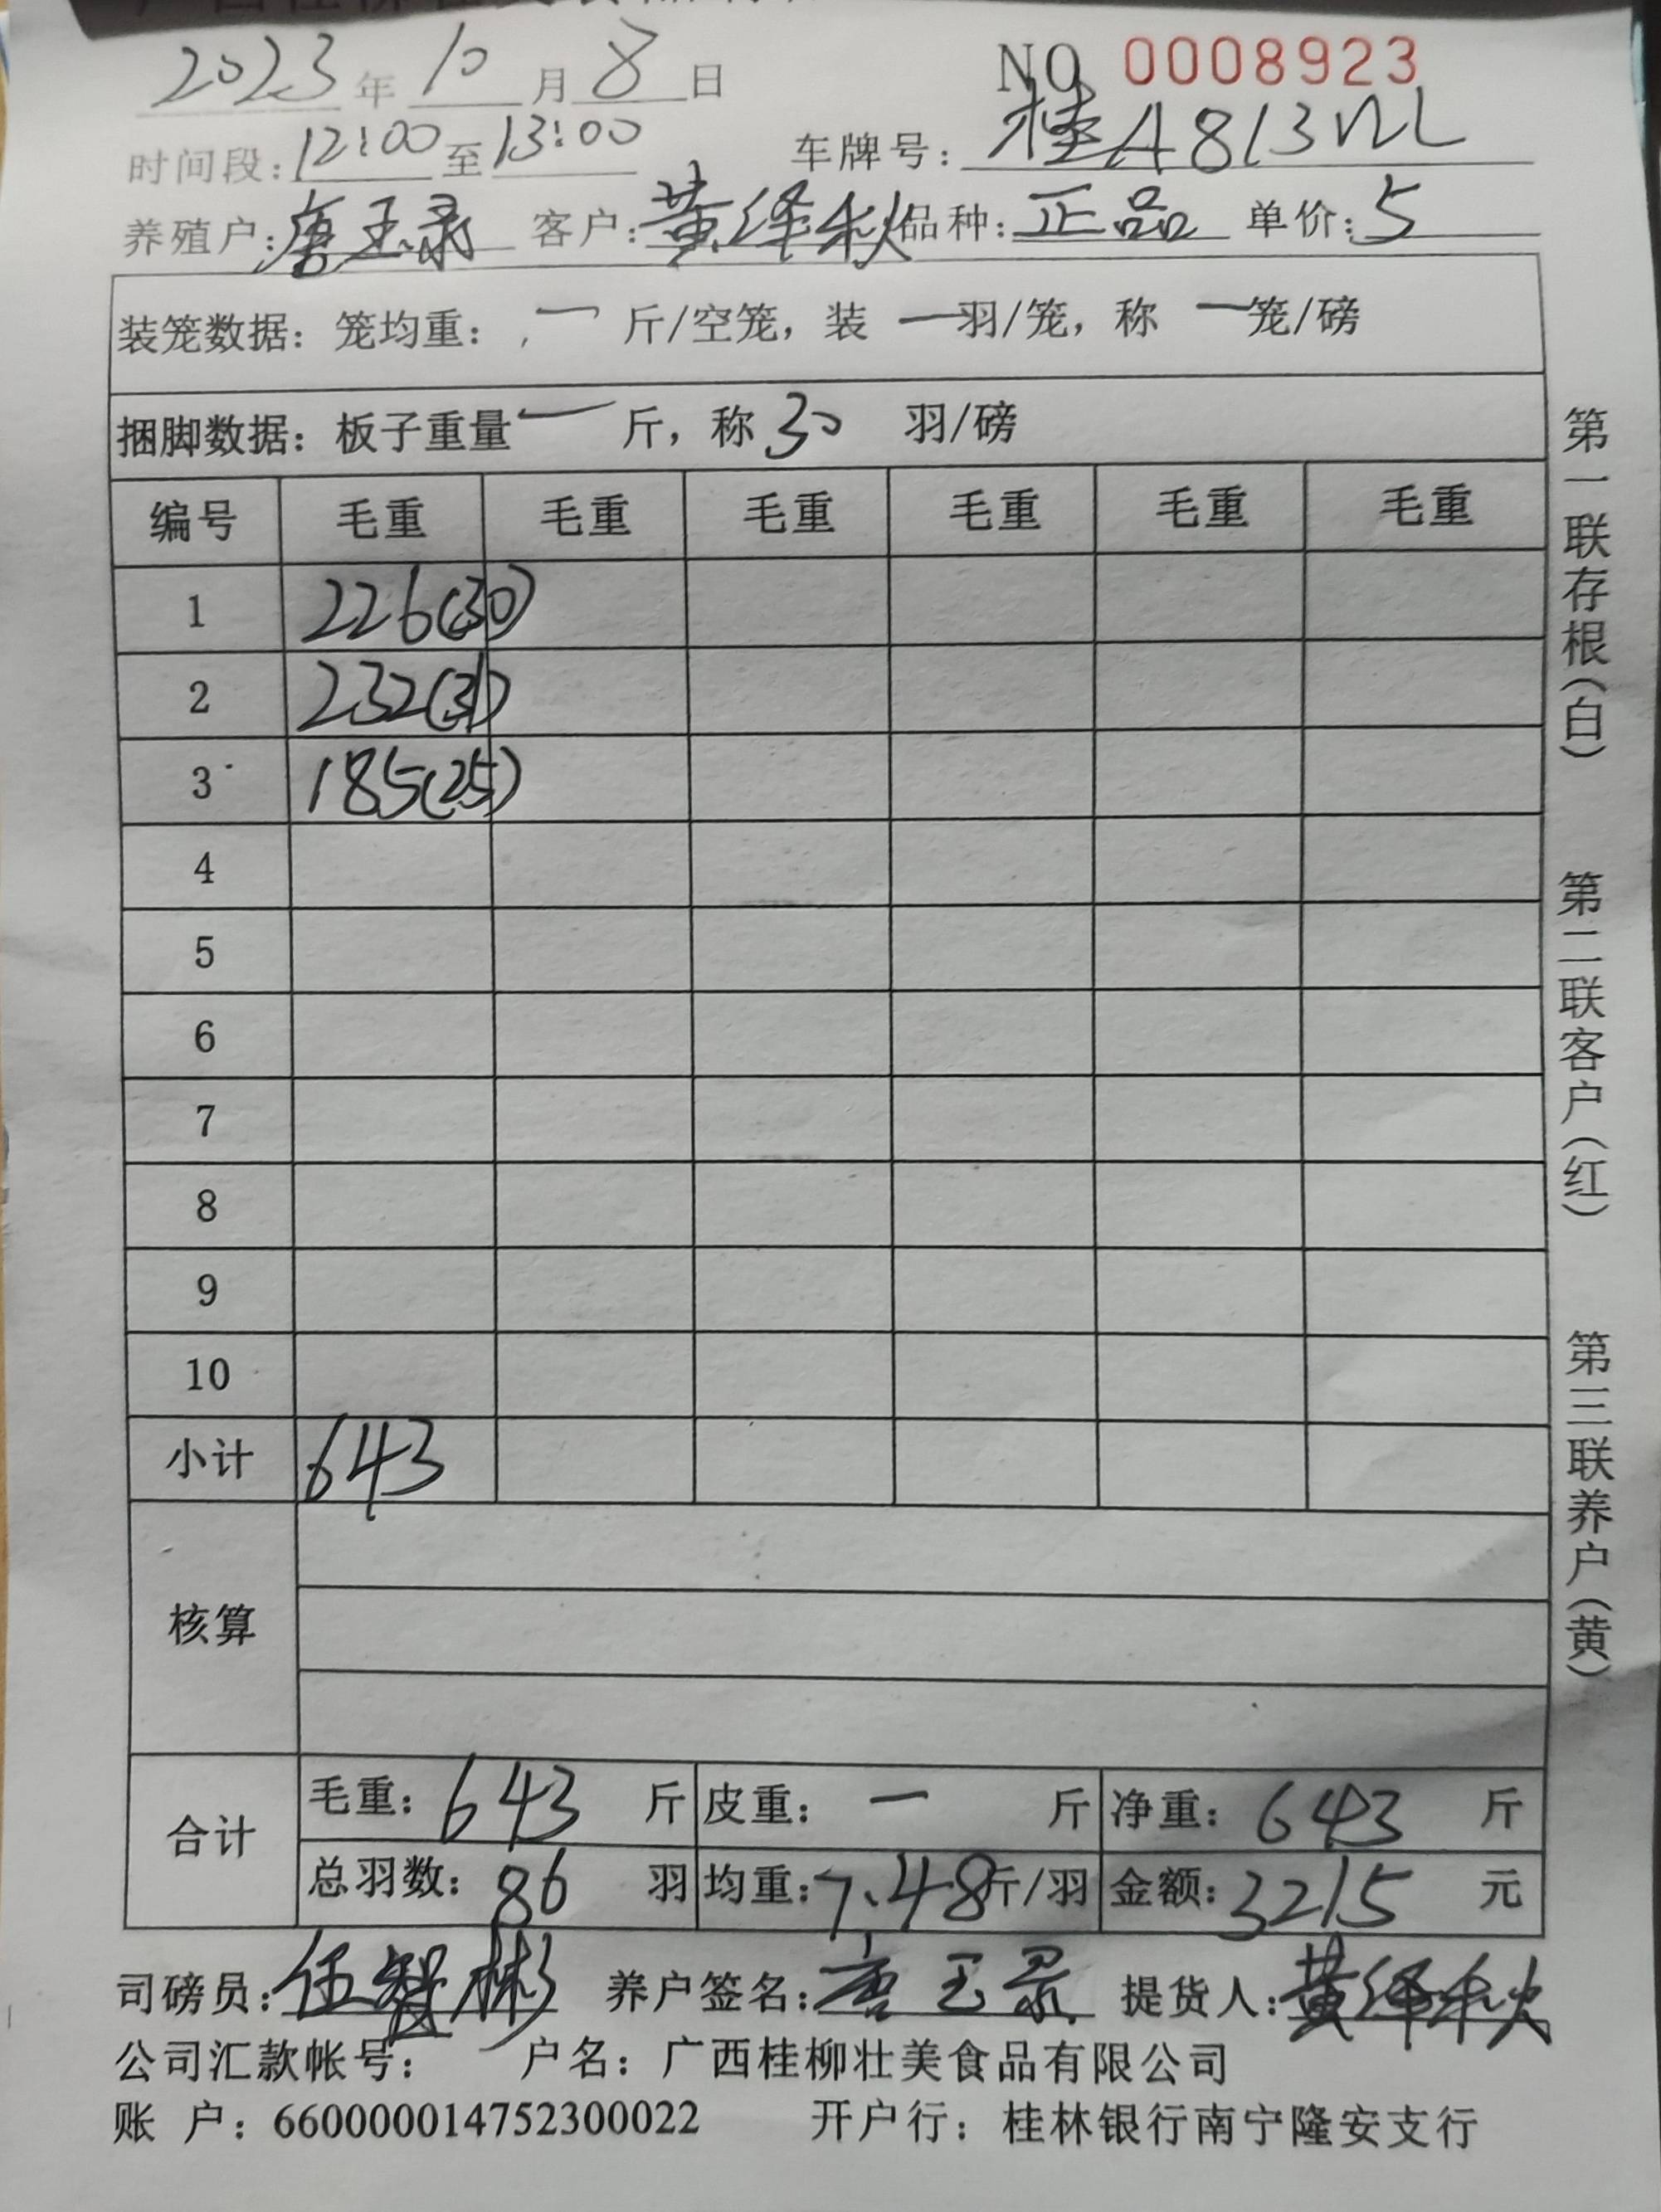 2023年10月8日 NO 0008923
时间段:12:00至13:00 车牌号:桂A813NL
养殖户:唐玉录 客户:黄绎秋 品种:正品 单价:5
装笼数据: 笼均重: 一 斤/空笼, 装 一 羽/笼, 称 一 笼/磅
捆脚数据: 板子重量 一 斤, 称 30 羽/磅
编号 毛重 毛重 毛重 毛重 毛重 毛重
1 226(30)
2 232(31)
3 185(25)
4
5
6
7
8
9
10
小计 643
核算
合计 毛重: 643 斤 皮重: 一 斤 净重: 643 斤
总羽数: 86 羽 均重: 7.48斤/羽 金额: 3215 元
司磅员:伍智彬 养户签名:唐玉录 提货人:黄绎秋
公司汇款帐号: 户名: 广西桂柳壮美食品有限公司
账 户: 660000014752300022 开户行: 桂林银行南宁隆安支行
第一联存根(白)
第二联客户(红)
第三联养户(黄)